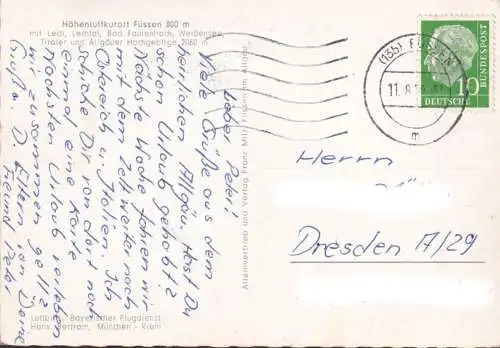 Höhenluftkurort Füssen 800 m
mit Lech, Lechtal, Bad Faulenbach, Weißensee,
Tiroler und Allgäuer Hochgebirge 2060 m
(13b) FÜSSEN
11.8.
m
10
DEUTSCHE
BUNDESPOST
Lieber Peter!
Viele Grüße aus dem
herrlichen Allgäu. Hast Du
schon Urlaub gehabt?
Nächste Woche fahren wir
mit dem Zelt weiter nach
Österreich u. Italien. Ich
schicke Dir von dort noch
einmal eine Karte.
Nächsten Urlaub verleben
wir zusammen gell?
Grüße D. Eltern von Deine
Freund Peter
Alleinvertrieb und Verlag Franz Milz, Füssen im Allgäu
Herrn
Dresden A/29
Luftbild: Bayerischer Flugdienst
Hans Bertram, München - Riem